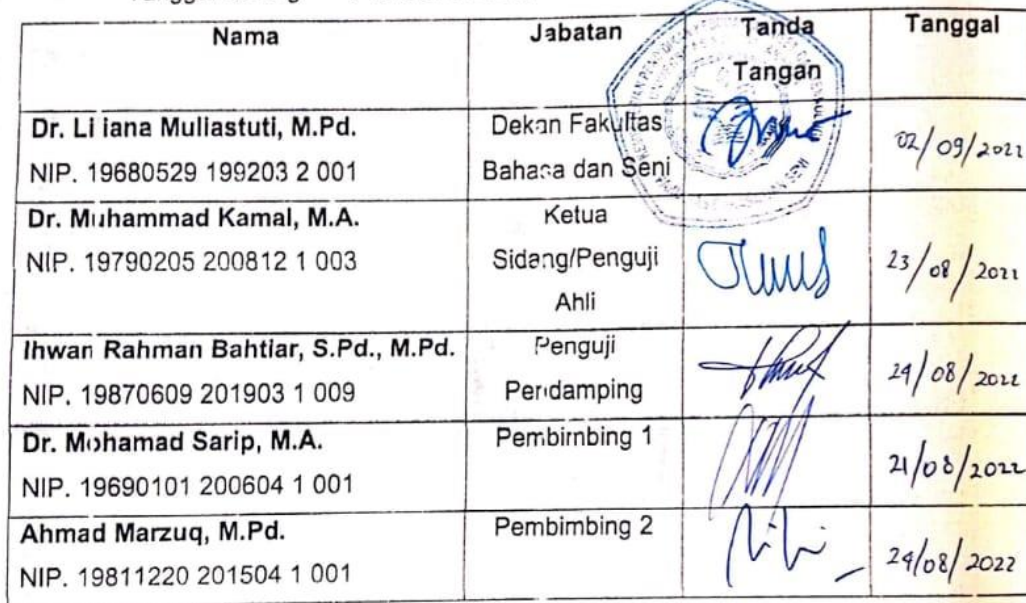 Nama Jabatan Tanda Tangan Tanggal
Dr. Liliana Muliastuti, M.Pd.
NIP. 19680529 199203 2 001
Dekan Fakultas
Bahasa dan Seni
02/09/2022
Dr. Muhammad Kamal, M.A.
NIP. 19790205 200812 1 003
Ketua
Sidang/Penguji
Ahli
23/08/2022
Ihwan Rahman Bahtiar, S.Pd., M.Pd.
NIP. 19870609 201903 1 009
Penguji
Pendamping
24/08/2022
Dr. Mohamad Sarip, M.A.
NIP. 19690101 200604 1 001
Pembimbing 1
21/08/2022
Ahmad Marzuq, M.Pd.
NIP. 19811220 201504 1 001
Pembimbing 2
24/08/2022